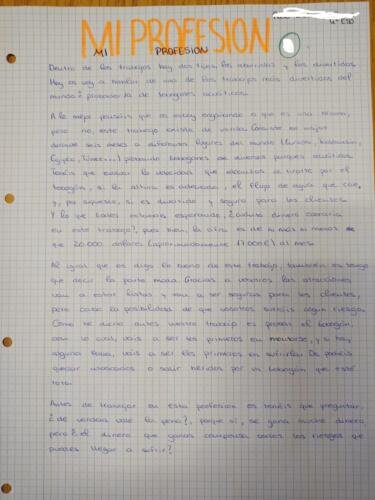 MI PROFESION
MI PROFESION
Dentro de los trabajos hay dos tipos, los aburridos y los divertidos.
Hoy os voy a hablar de uno de los trabajos más divertidos del
mundo: probador/a de toboganes acuáticos.
A lo mejor pensáis que os estoy engañando o que es una broma,
pero no, este trabajo existe de verdad. Consiste en viajar
durante seis meses a diferentes lugares del mundo
Egipto, probando toboganes de diversos parques acuáticos.
Tenéis que evaluar la velocidad que alcanzas al tirarte por el
tobogán, si la altura es adecuada, el flujo de agua que cae,
y, por supuesto, si es divertido y seguro para los clientes.
Y lo que todos estaréis esperando, ¿cuánto dinero ganaría
en este trabajo?, pues bien, la cifra es de ni más ni menos
que 20.000 dólares (aproximadamente 17.000€) al mes.
Al igual que os digo lo bueno de este trabajo, también os tengo
que decir la parte mala. Gracias a vosotros las atracciones
van a estar listas y van a ser seguras para los clientes,
pero existe la posibilidad de que vosotros sufráis algún riesgo.
Como he dicho antes vuestro trabajo es probar el tobogán,
vais a ser los primeros en montarse, y si hay
algún fallo, vais a ser los primeros en sufrirlo. Os podéis
quedar atascados o salir heridos por un tobogán que esté
roto.
Antes de trabajar en esta profesión os tenéis que preguntar,
¿de verdad vale la pena?, porque sí, se gana mucho dinero,
pero ¿el dinero que ganas compensa todos los riesgos que
puedes llegar a sufrir?